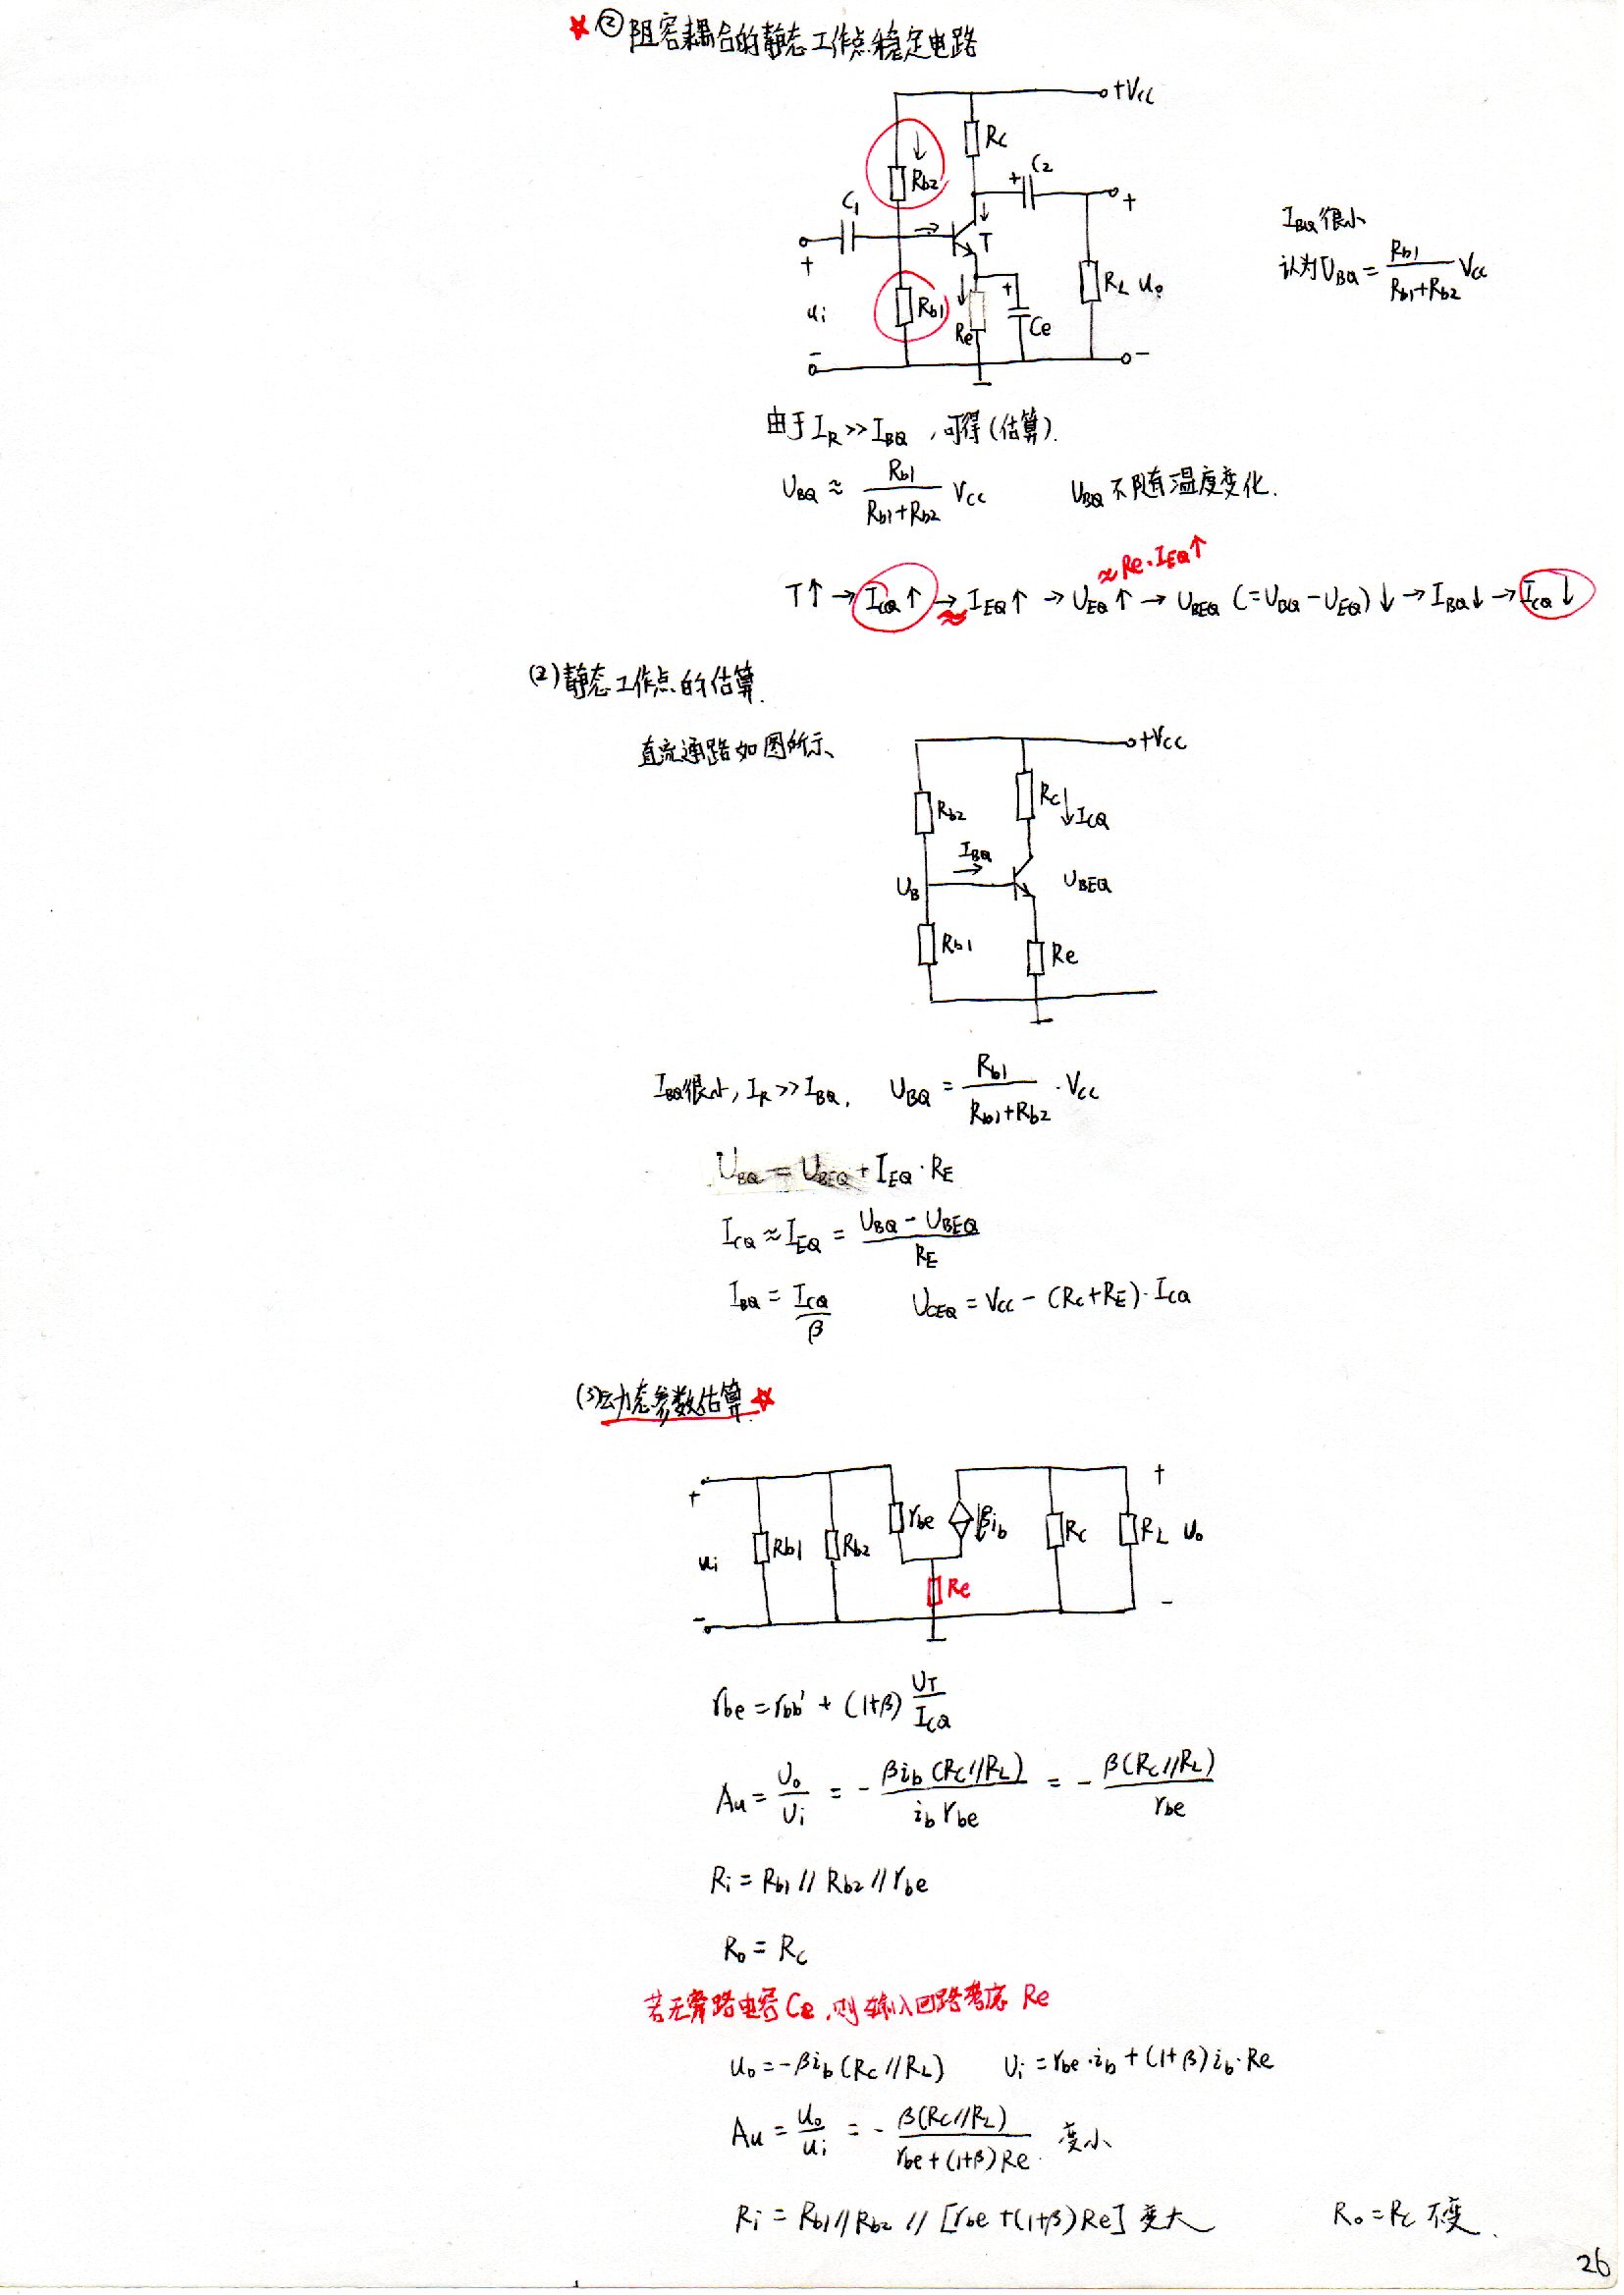 ②阻容耦合的静态工作点稳定电路
+Vcc
Rc
Rb2
C2
+
+
C1
T
+
ui
Rb1
Re
+
Ce
RL uo
-
-
IBQ很小
认为UBQ = Rb1/(Rb1+Rb2) Vcc
由于IR>>IBQ，可得(估算).
UBQ ≈ Rb1/(Rb1+Rb2) Vcc UBQ不随温度变化.
≈Re·IEQ↑
T↑→ICQ↑→IEQ↑→UEQ↑→UBEQ(=UBQ-UEQ)↓→IBQ↓→ICQ↓
≈
(2)静态工作点的估算.
直流通路如图所示、
+Vcc
Rb2
Rc ↓ICQ
IBQ
UB
UBEQ
Rb1
Re
IBQ很小，IR>>IBQ. UBQ = Rb1/(Rb1+Rb2)·Vcc
UBQ = UBEQ + IEQ·RE
ICQ≈IEQ = (UBQ-UBEQ)/RE
IBQ = ICQ/β UCEQ = Vcc-(Rc+RE)·ICQ
(3)动态参数估算
+
ui
-
Rb1
Rb2
rbe
βib
Re
Rc
RL
+
uo
-
rbe = rbb' + (1+β) UT/ICQ
Au = Uo/Ui = - βib(Rc//RL)/(ib rbe) = - β(Rc//RL)/rbe
Ri = Rb1 // Rb2 // rbe
Ro = Rc
若无旁路电容Ce，则输入回路考虑 Re
uo = -βib(Rc//RL) Ui = rbe·ib + (1+β)ib·Re
Au = uo/ui = - β(Rc//RL)/(rbe+(1+β)Re) . 变小
Ri = Rb1//Rb2 // [rbe+(1+β)Re] 变大 Ro = Rc 不变.
26